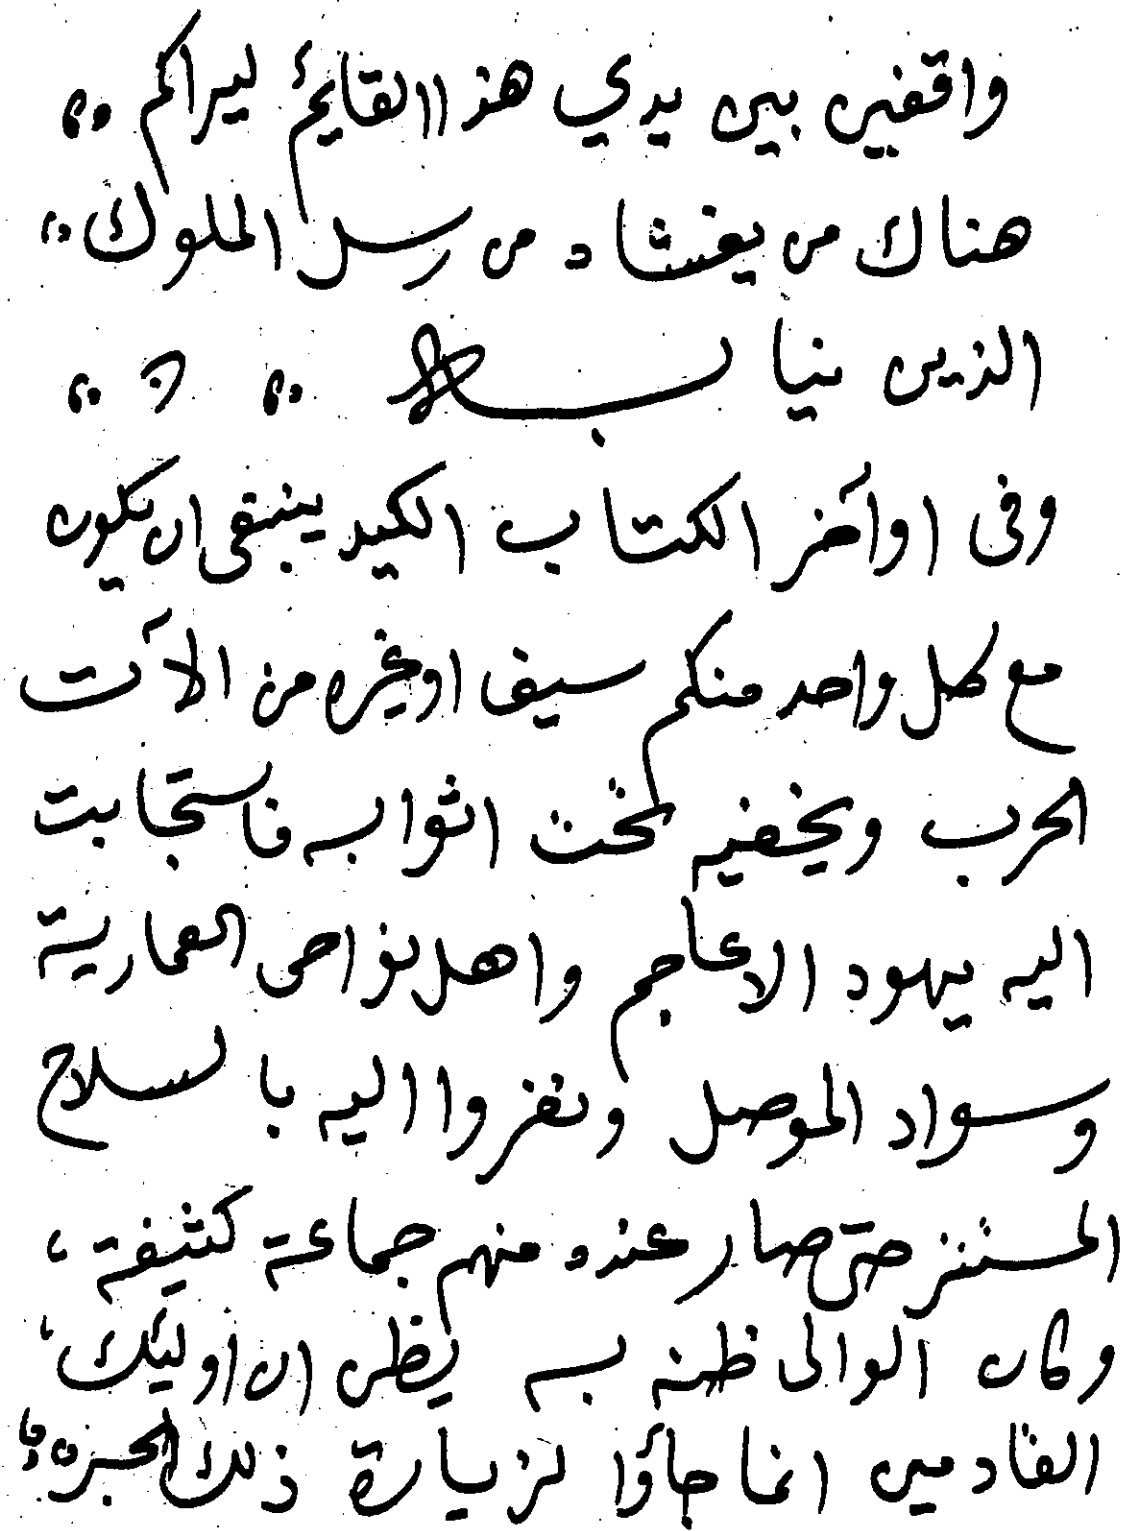 واقفين بين يدي هذا القايم ليراكم
هناك من يغشاه من رسل الملوك
الذين نيا بـــه
وفى اواخر الكتاب الكيد ينبغى ان يكون
مع كل واحد منكم سيف او غيره من الآت
الحرب ويخفيه تحت اثوابه فاستجابت
اليه يهود الاعاجم واهل نواحى العمارية
وسواد الموصل ونفروا اليه بالسلاح
المستنز حتى صار عنده منهم جماعة كثيفة
وكان الوالى ظنه به يظن ان اوليك
القادمين انما جاؤا لزيارة ذلك الحبر